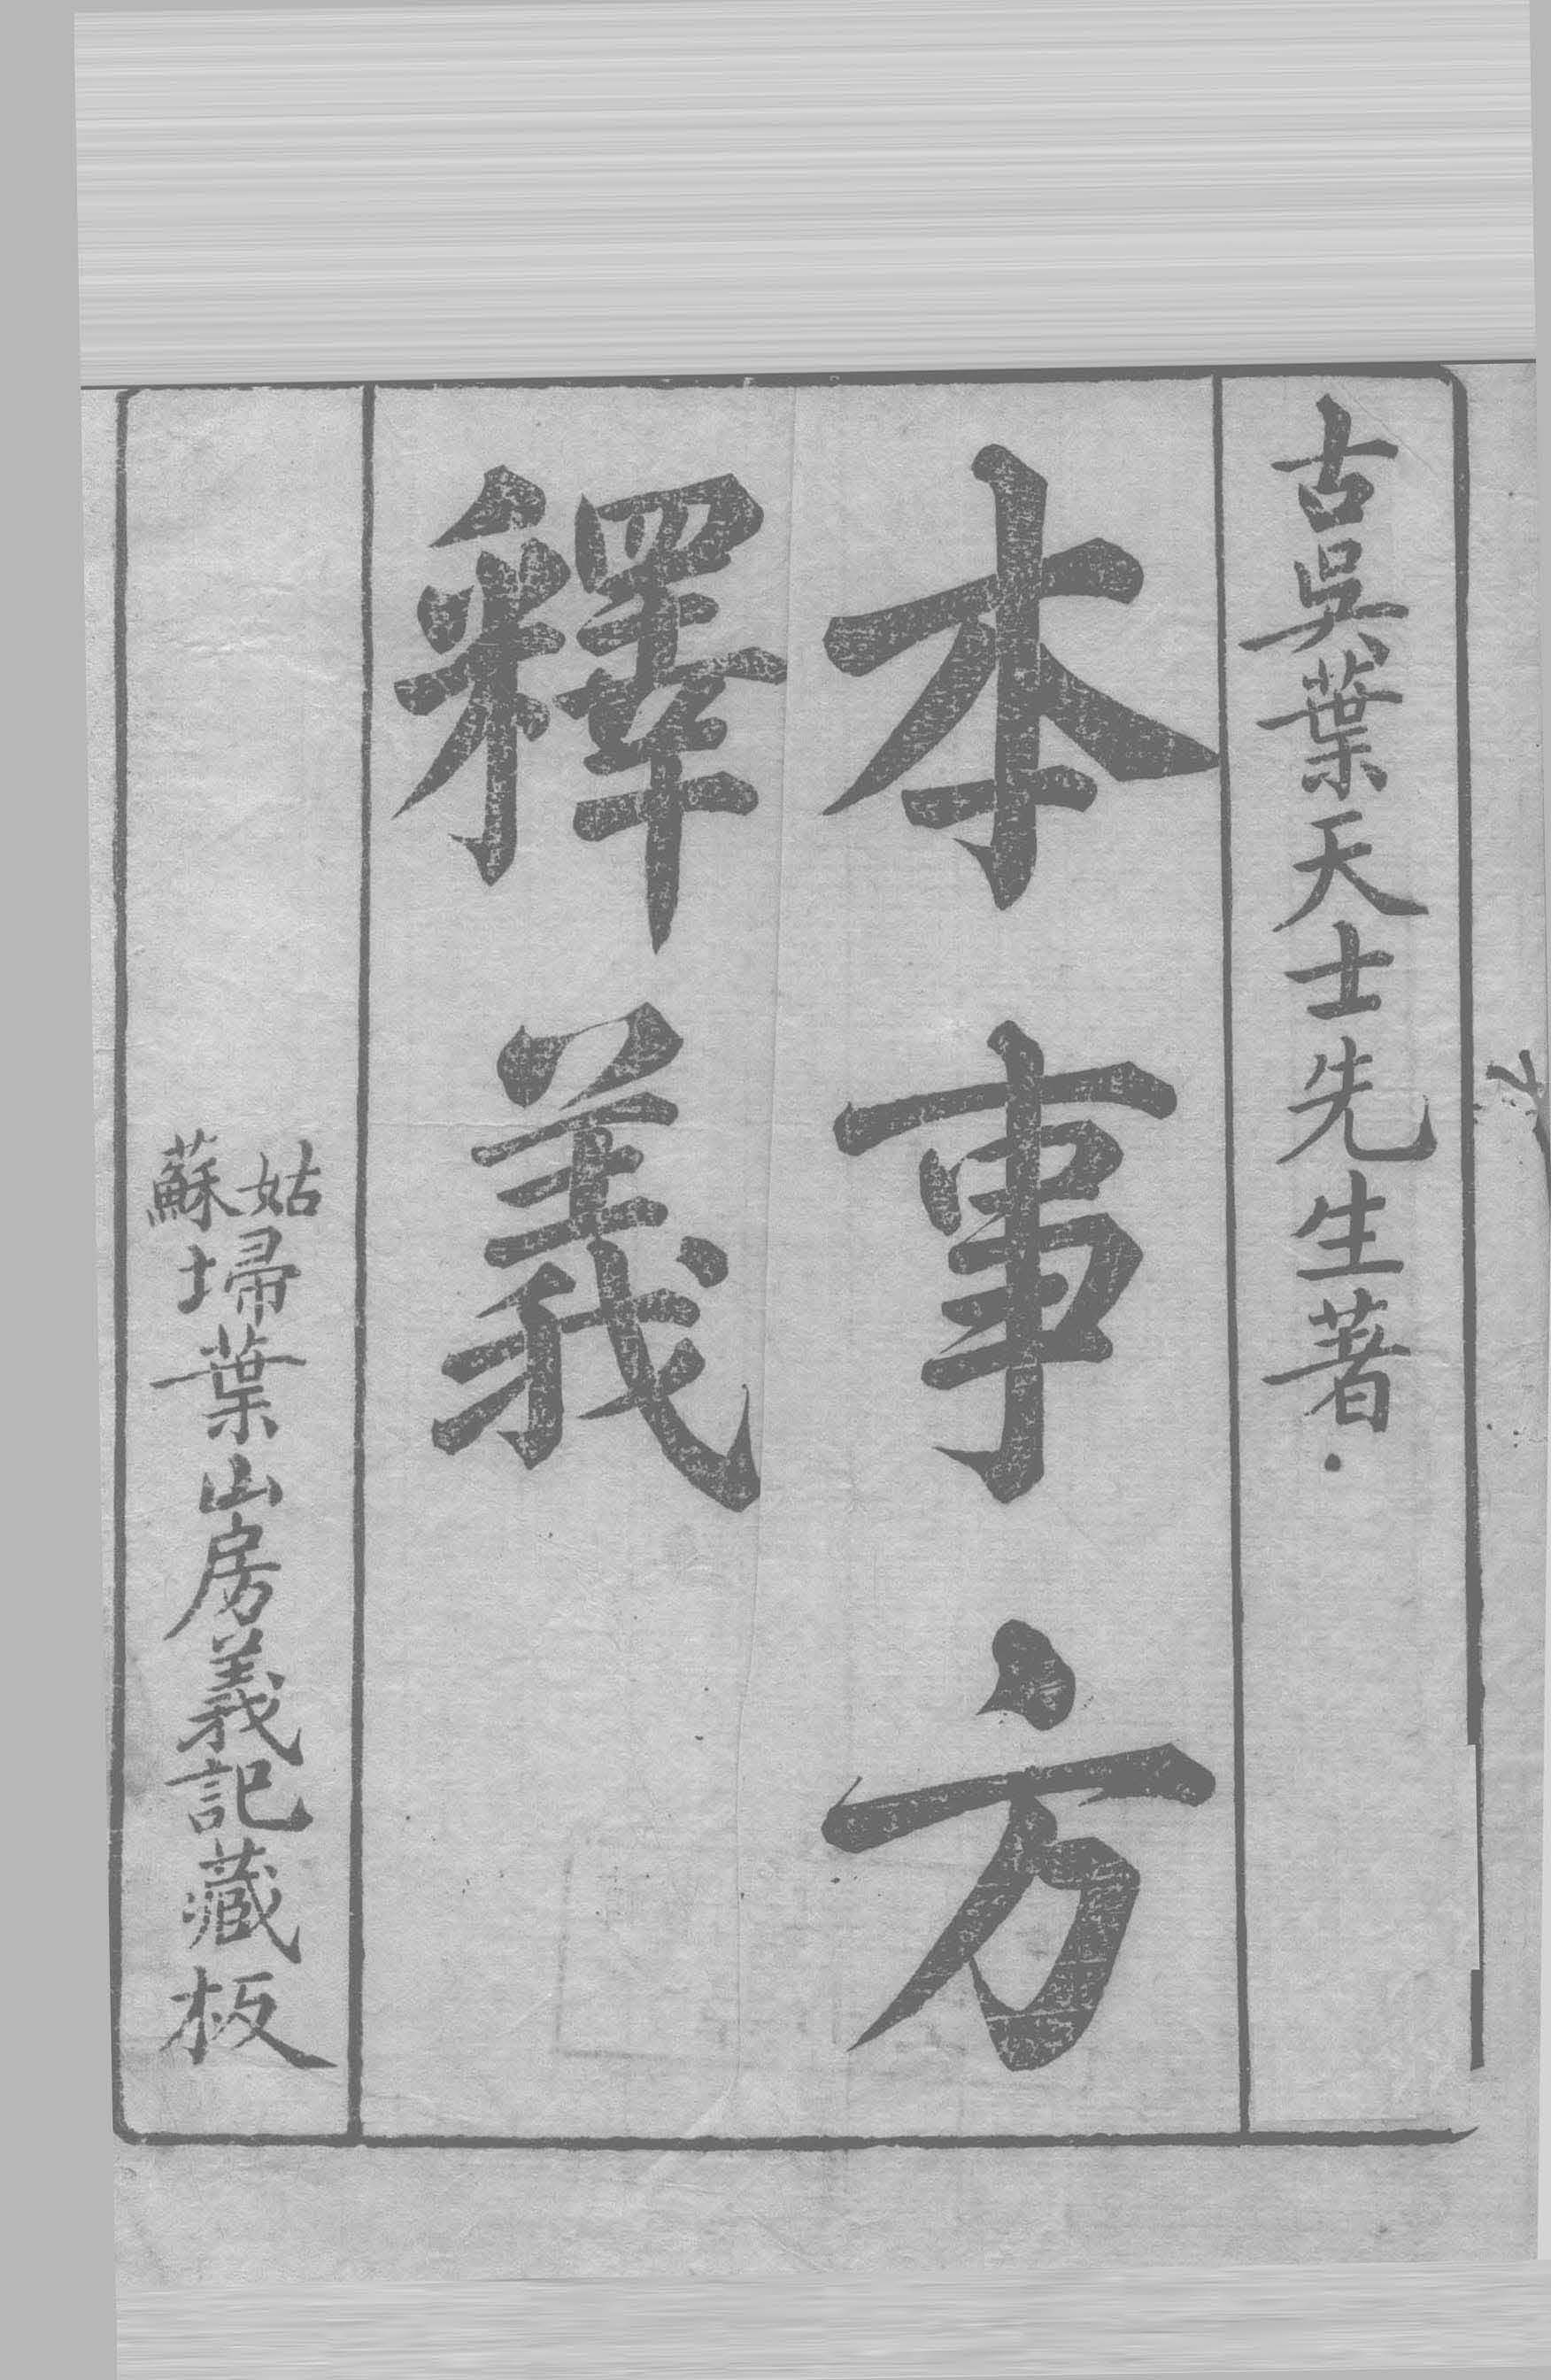 古吳葉天士先生著
本事方
釋義
姑蘇埽葉山房義記藏板